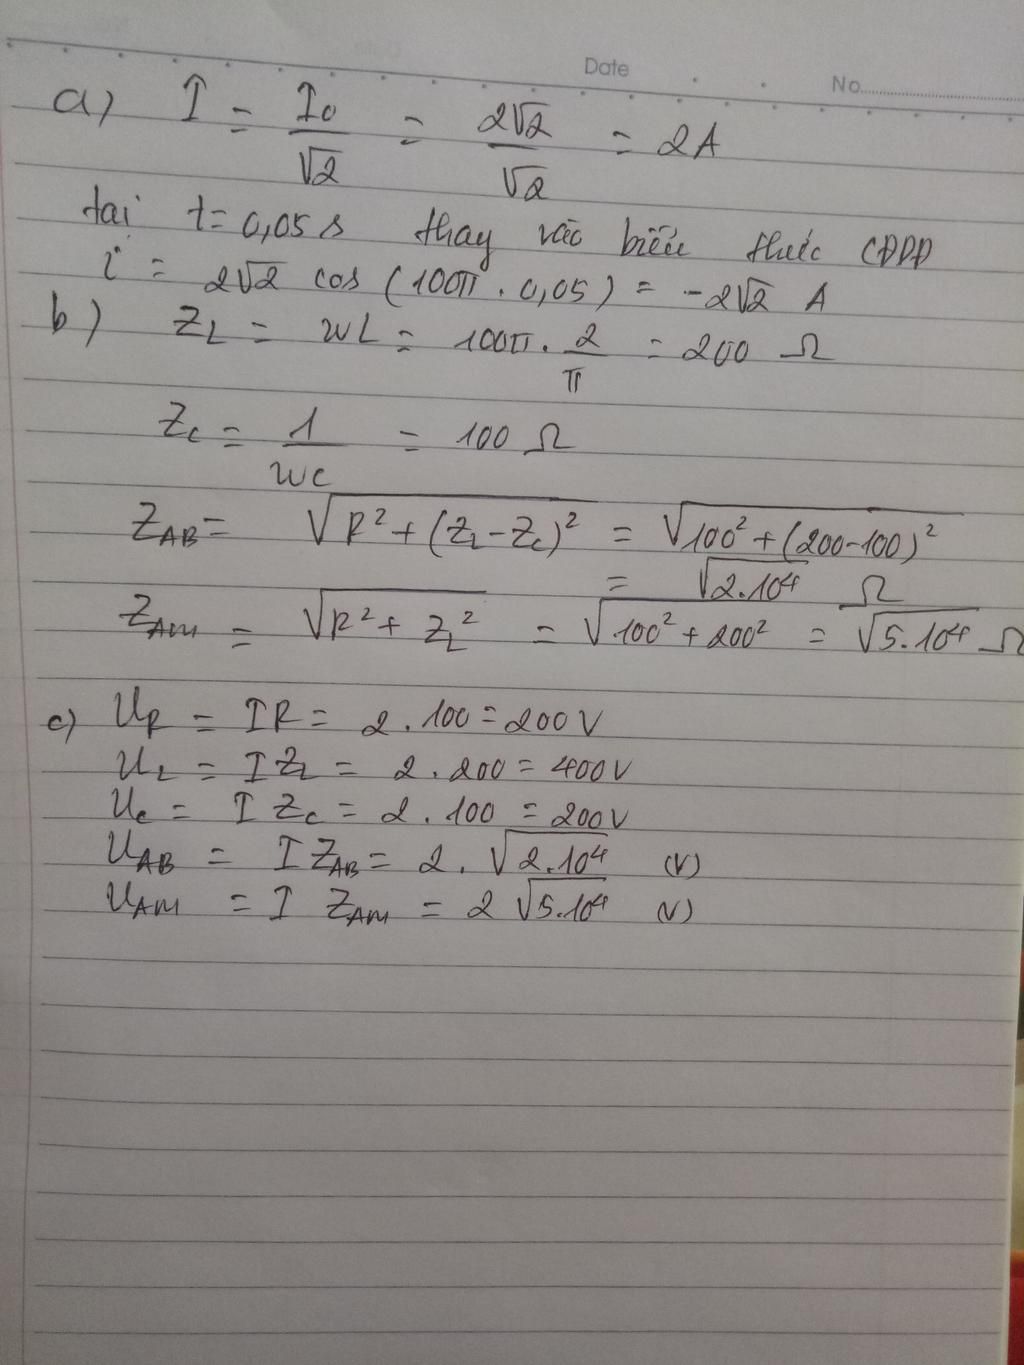 Date
No.
a) I = I0/√2 = 2√2/√2 = 2A
tại t = 0,05 s thay vào biểu thức CĐDĐ
i = 2√2 cos (100π . 0,05) = -2√2 A
b) ZL = wL = 100π . 2/π = 200 Ω
Zc = 1/wc = 100 Ω
ZAB = √R² + (ZL - Zc)² = √100² + (200-100)²
= √2.10⁴ Ω
ZAM = √R² + ZL² = √100² + 200² = √5.10⁴ Ω
c) UR = IR = 2 . 100 = 200V
UL = I ZL = 2 . 200 = 400V
Uc = I Zc = 2 . 100 = 200V
UAB = I ZAB = 2 . √2.10⁴ (V)
UAM = I ZAM = 2 √5.10⁴ (V)